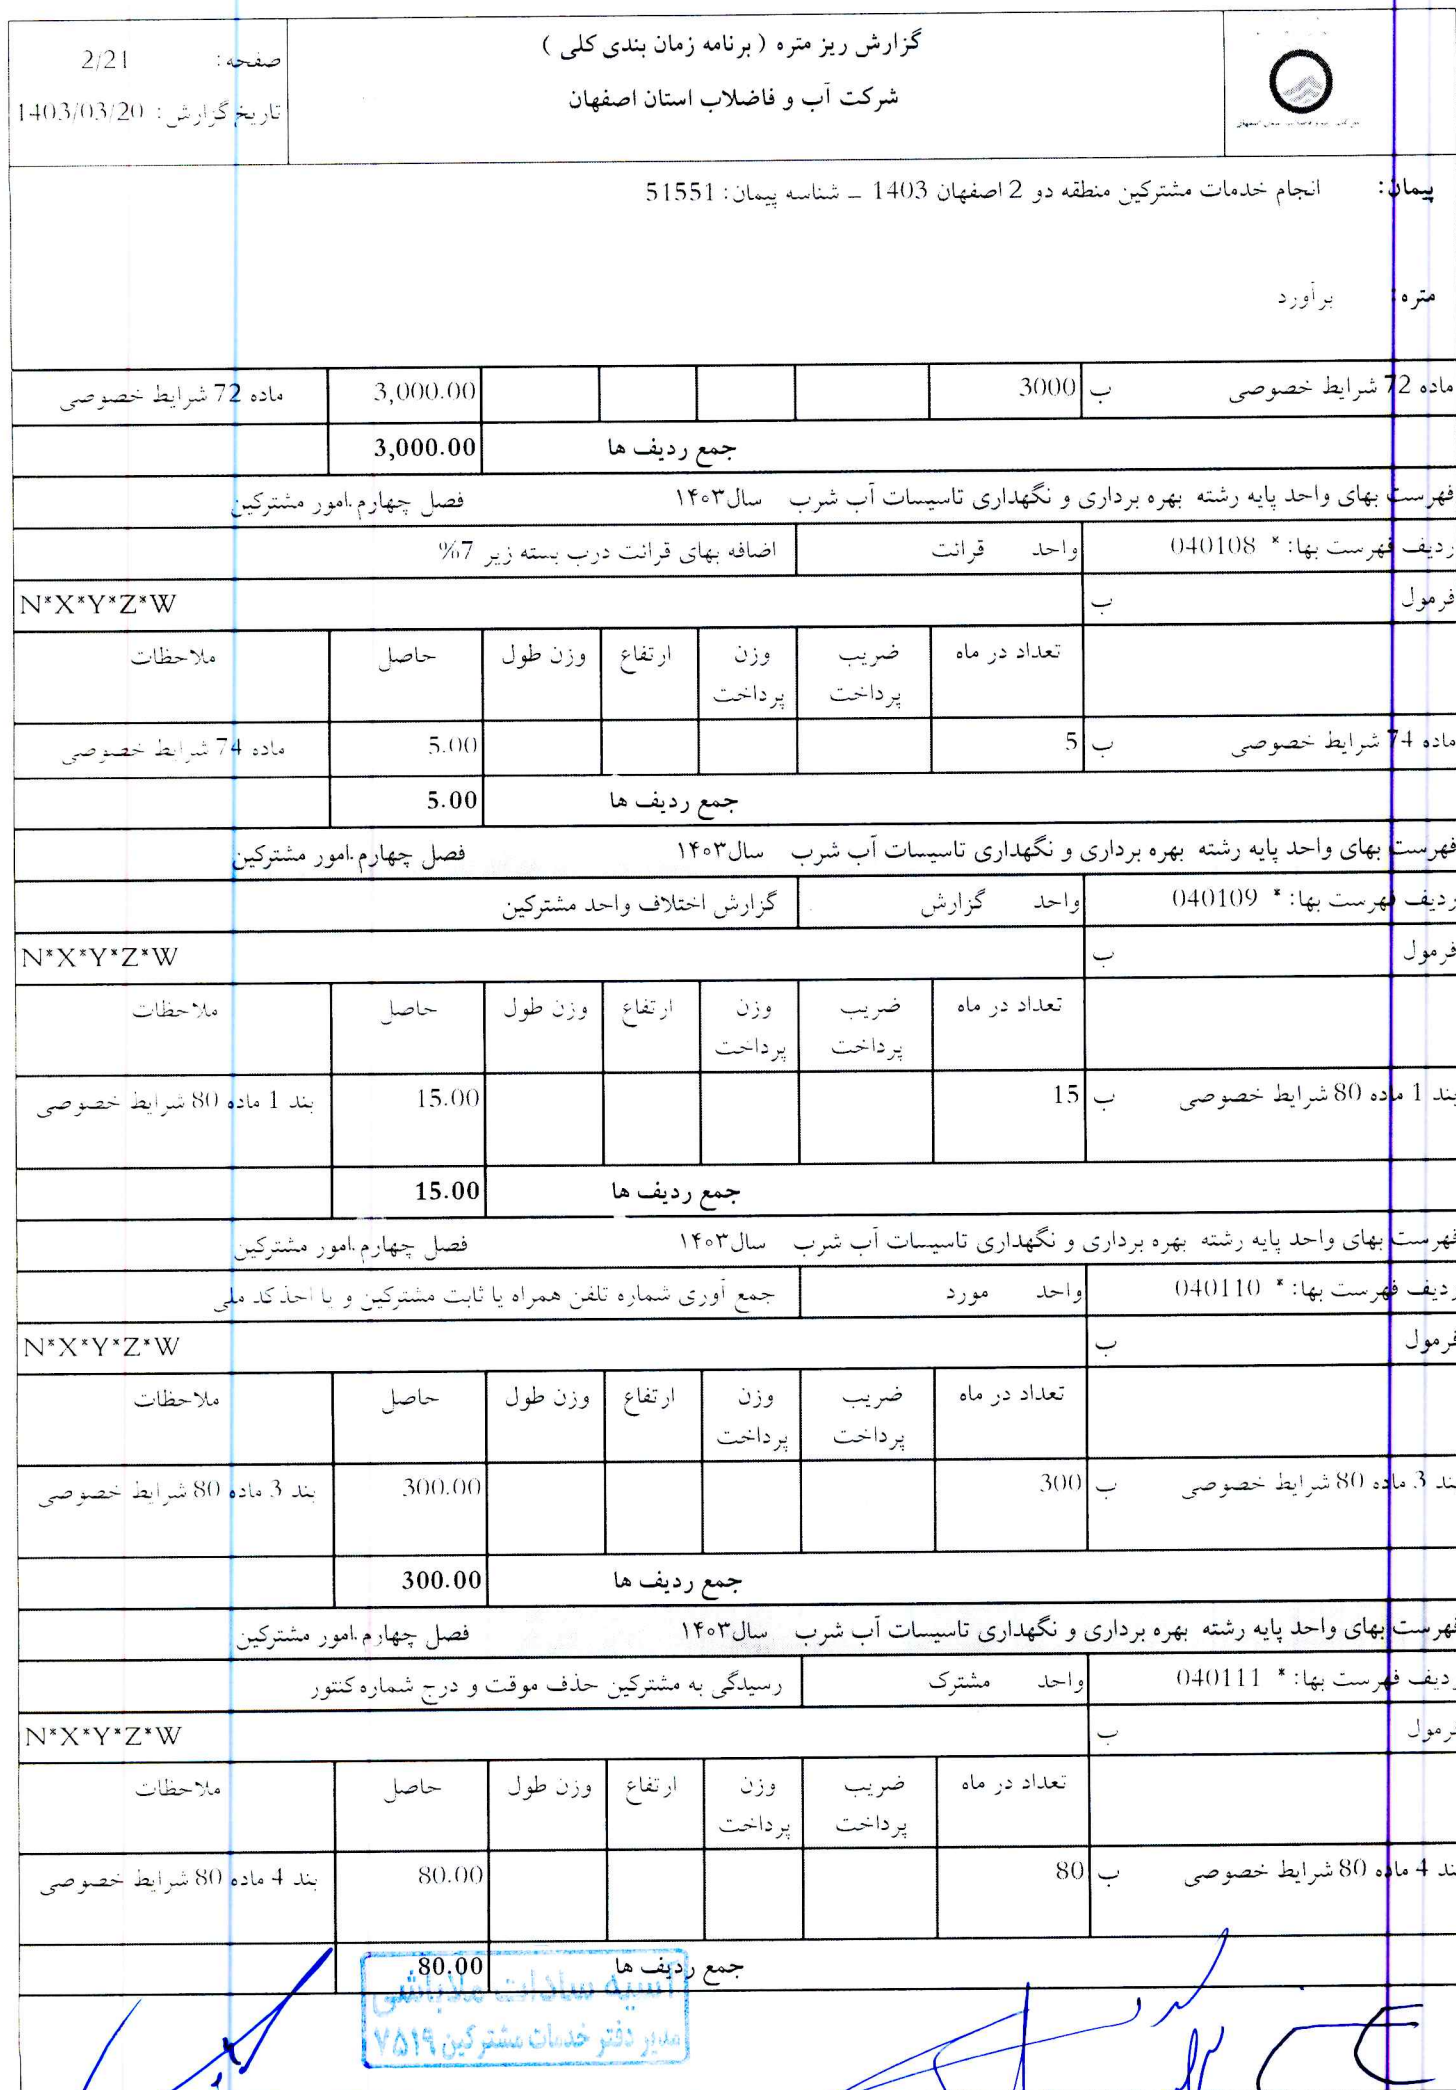 گزارش ریز متره ( برنامه زمان بندی کلی )
شرکت آب و فاضلاب استان اصفهان
صفحه: 2/21
تاریخ گزارش: 1403/03/20
پیمان: انجام خدمات مشترکین منطقه دو 2 اصفهان 1403 ـ شناسه پیمان: 51551
متره: برآورد
ماده 72 شرایط خصوصی ب 3000 3,000.00 ماده 72 شرایط خصوصی
جمع ردیف ها 3,000.00
فهرست بهای واحد پایه رشته بهره برداری و نگهداری تاسیسات آب شرب سال۱۴۰۳ فصل چهارم.امور مشترکین
ردیف فهرست بها: * 040108 واحد قرائت اضافه بهای قرائت درب بسته زیر 7%
فرمول ب N*X*Y*Z*W
تعداد در ماه ضریب پرداخت وزن پرداخت ارتفاع وزن طول حاصل ملاحظات
ماده 74 شرایط خصوصی ب 5 5.00 ماده 74 شرایط خصوصی
جمع ردیف ها 5.00
فهرست بهای واحد پایه رشته بهره برداری و نگهداری تاسیسات آب شرب سال۱۴۰۳ فصل چهارم.امور مشترکین
ردیف فهرست بها: * 040109 واحد گزارش گزارش اختلاف واحد مشترکین
فرمول ب N*X*Y*Z*W
تعداد در ماه ضریب پرداخت وزن پرداخت ارتفاع وزن طول حاصل ملاحظات
بند 1 ماده 80 شرایط خصوصی ب 15 15.00 بند 1 ماده 80 شرایط خصوصی
جمع ردیف ها 15.00
فهرست بهای واحد پایه رشته بهره برداری و نگهداری تاسیسات آب شرب سال۱۴۰۳ فصل چهارم.امور مشترکین
ردیف فهرست بها: * 040110 واحد مورد جمع آوری شماره تلفن همراه یا ثابت مشترکین و یا اخذ کد ملی
فرمول ب N*X*Y*Z*W
تعداد در ماه ضریب پرداخت وزن پرداخت ارتفاع وزن طول حاصل ملاحظات
بند 3 ماده 80 شرایط خصوصی ب 300 300.00 بند 3 ماده 80 شرایط خصوصی
جمع ردیف ها 300.00
فهرست بهای واحد پایه رشته بهره برداری و نگهداری تاسیسات آب شرب سال۱۴۰۳ فصل چهارم.امور مشترکین
ردیف فهرست بها: * 040111 واحد مشترک رسیدگی به مشترکین حذف موقت و درج شماره کنتور
فرمول ب N*X*Y*Z*W
تعداد در ماه ضریب پرداخت وزن پرداخت ارتفاع وزن طول حاصل ملاحظات
بند 4 ماده 80 شرایط خصوصی ب 80 80.00 بند 4 ماده 80 شرایط خصوصی
جمع ردیف ها 80.00
آسیه سادات ملاباشی
مدیر دفتر خدمات مشترکین ۷۵۱۹